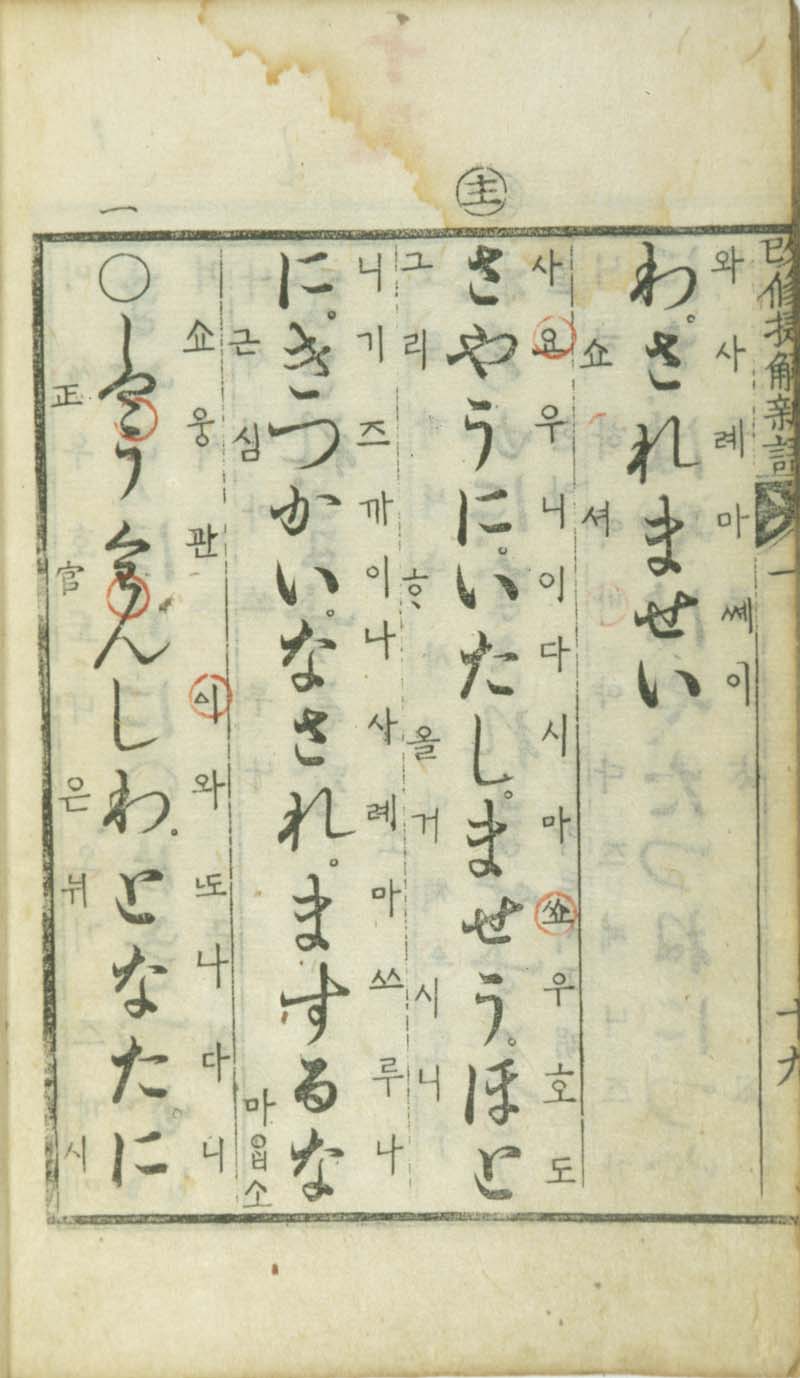 改修捷解新語 一 十九
와사례마쎄이
わ。されませい
쇼셔
主
사요우니이다시마쑈우호도
さやうに。いたし。ませう。ほと
그리ᄒᆞ올거시니
니기즈까이나사례마쓰루나
に。きつかい。なされ。まするな
근심마ᄋᆞᆸ소
一
쇼웅관ᅀᅵ와ᄕᅩ나다니
○しやうくわんしわ。となた。に
正官은뉘시